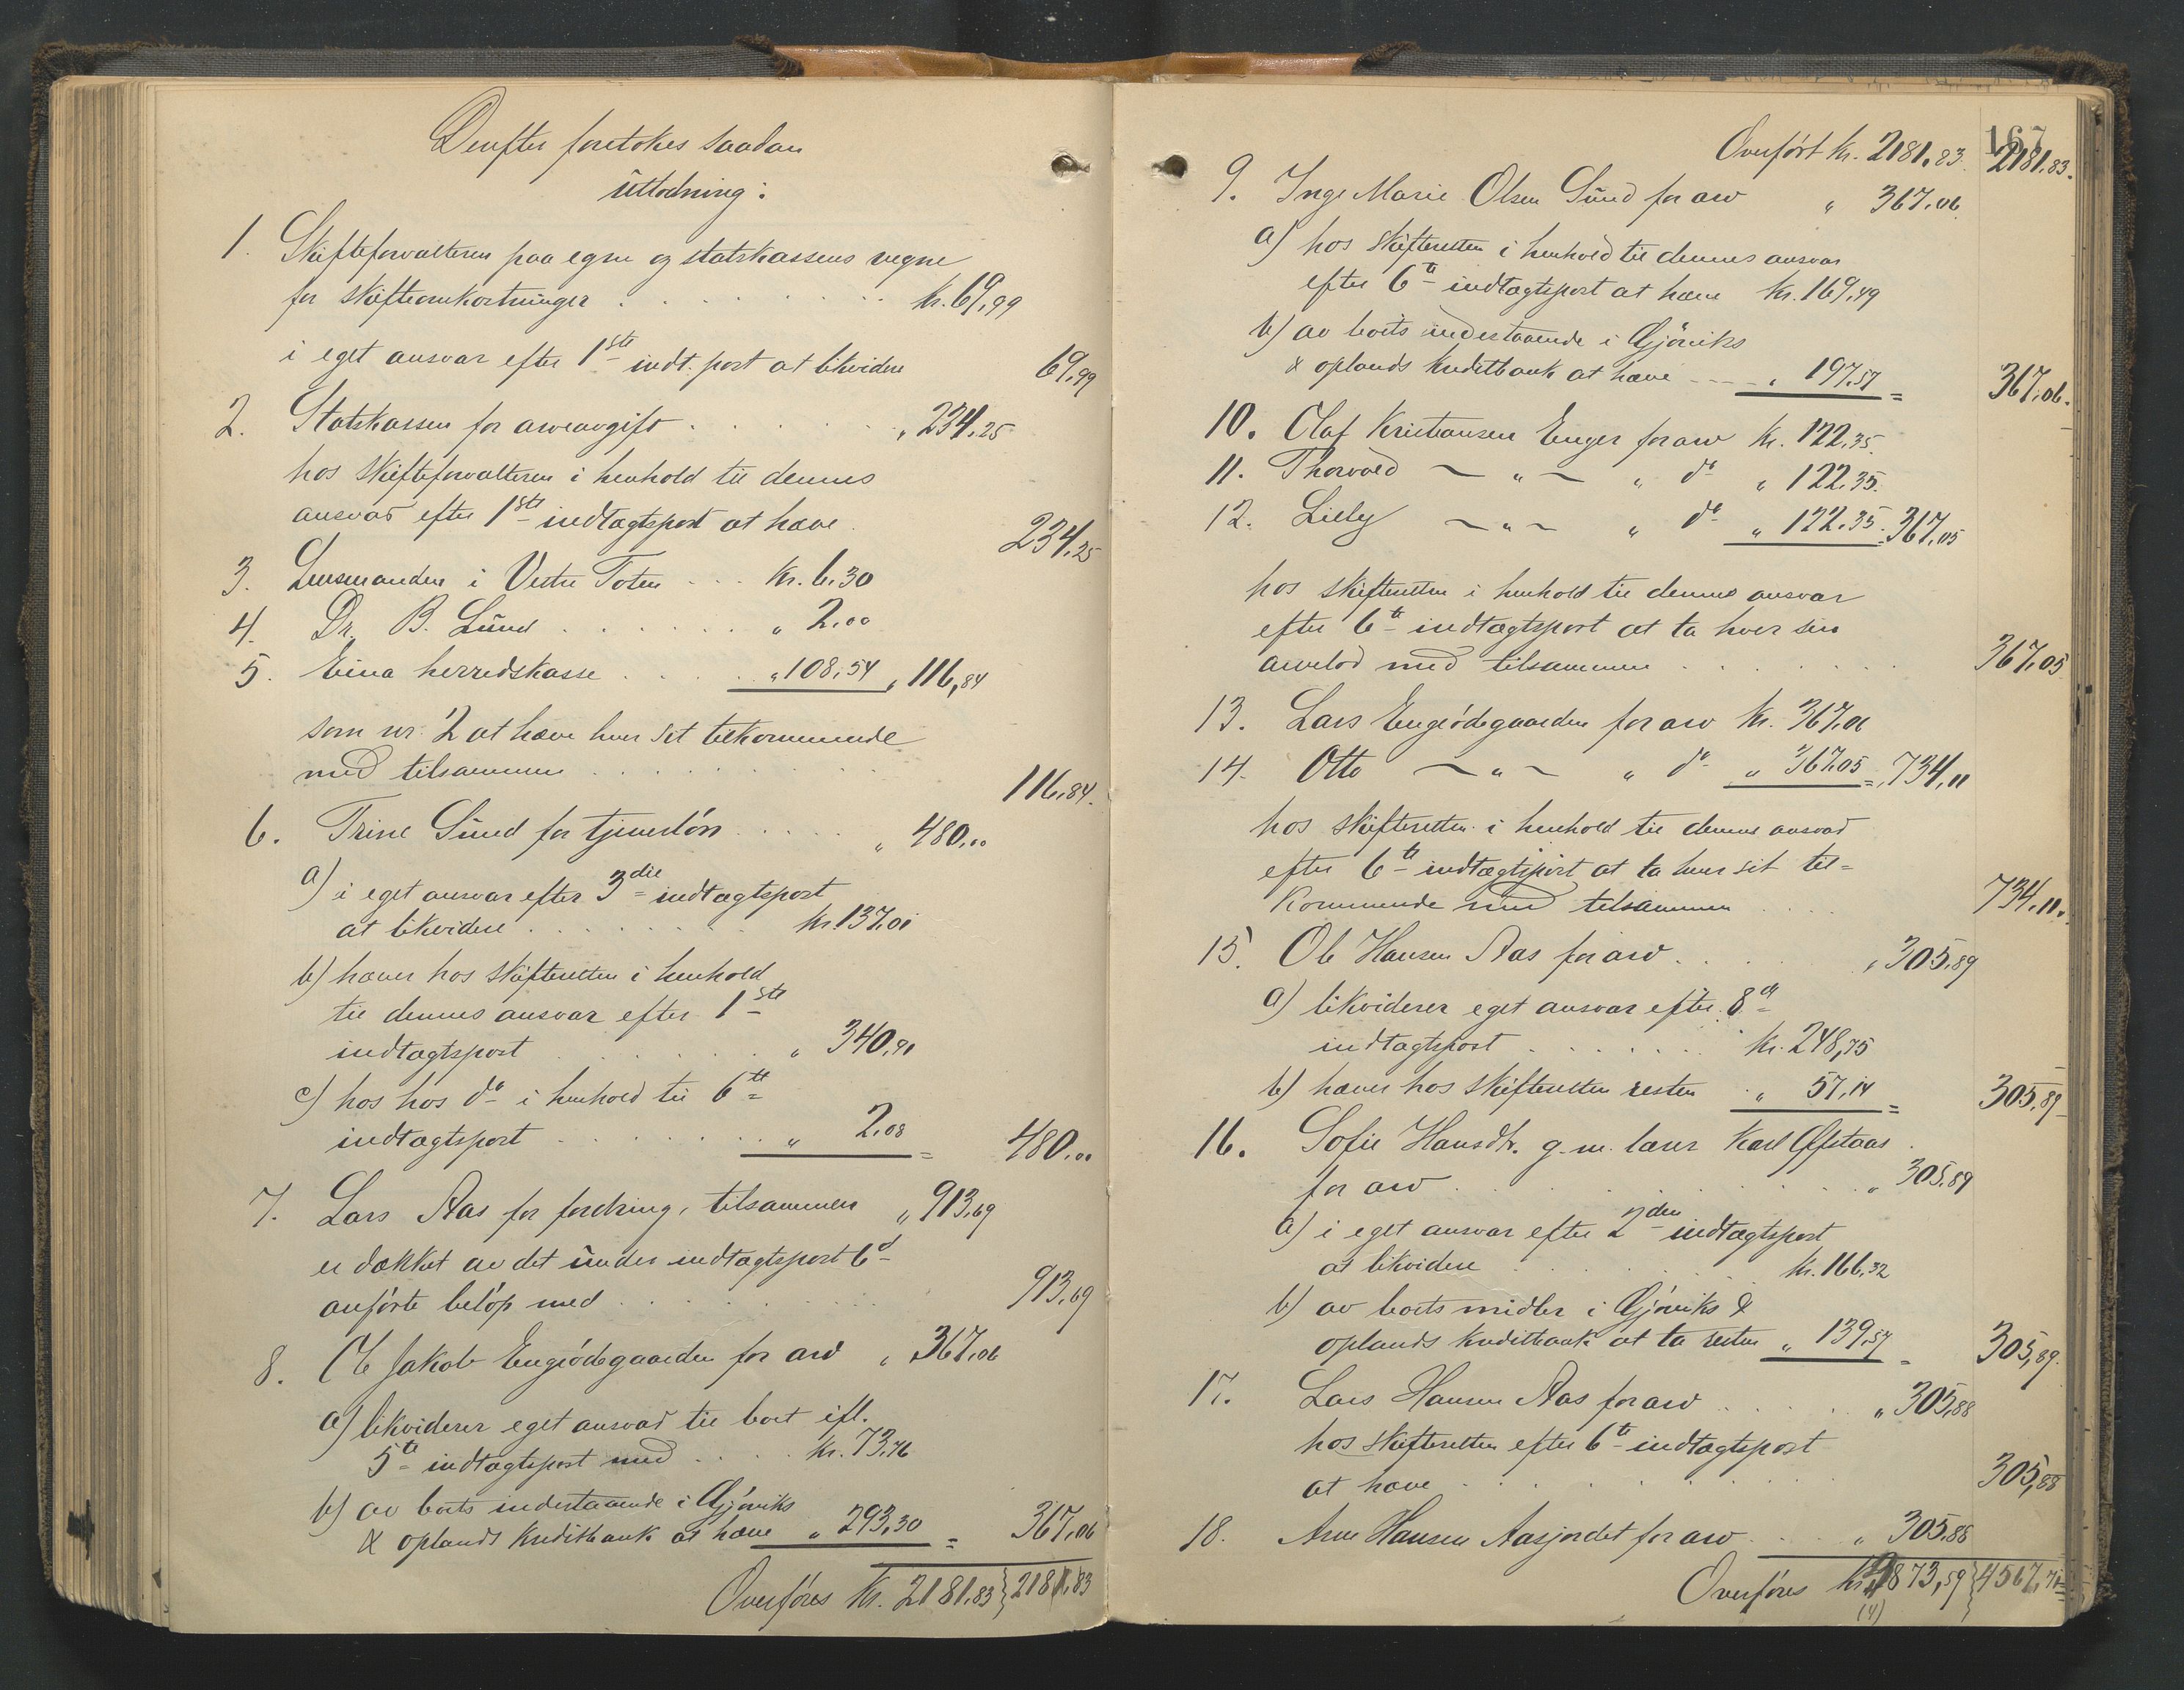 Derefter foretokes saadan
utlodning:
1. Skifteforvalteren paa egne og statskassens vegne
for skifteomkostninger . . . . kr. 69,99
i eget ansvar efter 1ste indt. post at likvidere 69,99
2. Statskassen for arveavgift . . . . " 234,25
hos skifteforvalteren i henhold til dennes
ansvar efter 1ste indtægtspost at hæve 234,25
3. Lensmanden i Vestre Toten . . . kr. 6,30
4. Dr. B. Lund . . . . " 2,00
5. Eina herredskasse . . . . " 108,54 " 116,84
som nr. 2 at hæve hver sit tilkommende
med tilsammen . . . . 116,84.
6. Trine Sund for tjenerløn . . . . " 480,00
a) i eget ansvar efter 3die indtægtspost
at likvidere . . . . kr. 137,01
b) hæver hos skifteretten i henhold
til dennes ansvar efter 1ste
indtægtspost . . . . " 340,91
c) hos hos do i henhold til 6te
indtægtspost . . . . " 2,08 = 480,00
7. Lars Aas for fordring, tilsammen " 913,69
er dækket av det under indtægtspost 6
anførte beløp med . . . . 913,69
8. Ole Jakob Engeødegaarden for arv " 367,06
a) likviderer eget ansvar til boet ifl.
5te indtægtspost med . . . . kr. 73,76
b) av boets indestaaende i Gjøviks
& oplands kreditbank at hæve " 293,30 = 367,06
Overføres kr. 2181,83 } 2181,83
167
Overført kr. 2181,83. 2181,83.
9. Inge Marie Olsen Sund for arv " 367,06
a) hos skifteretten i henhold til dennes ansvar
efter 6te indtægtspost at hæve kr. 169,49
b) av boets indestaaende i Gjøviks
& oplands kreditbank at hæve - - - " 197,57 = 367,06.
10. Olaf Kristiansen Enger for arv kr. 122,35.
11. Thorvald ~ " ~ " do " 122,35.
12. Lilly ~ " ~ " do " 122,35 = 367,05
hos skifteretten i henhold til dennes ansvar
efter 6te indtægtspost at ta hver sin
arvelod med tilsammen . . . . 367,05
13. Lars Engeødegaarden for arv kr. 367,06
14. Otto ~ " ~ " do " 367,05 = 734,11
hos skifteretten i henhold til dennes ansvar
efter 6te indtægtspost at ta hver sit til=
kommende med tilsammen . . . . 734,11.
15. Ole Hansen Aas for arv . . . . " 305,89
a) likviderer eget ansvar efter 8de
indtægtspost . . . . kr. 248,75
b) hæver hos skifteretten resten " 57,14 = 305,89
16. Sofie Hansdtr. g. m. lærer Karl Øfstaas
for arv . . . . " 305,89
a) i eget ansvar efter 2den indtægtspost
at likvidere . . . . kr. 166,32
b) av boets midler i Gjøviks &
oplands kreditbank at ta resten " 139,57 = 305,89.
17. Lars Hansen Aas for arv . . . . " 305,88
hos skifteretten efter 6te indtægtspost
at hæve . . . . 305,88
18. Arne Hansen Aasjordet for arv . . . . " 305,88
Overføres kr. 4873,59 } 4567,71
(4)